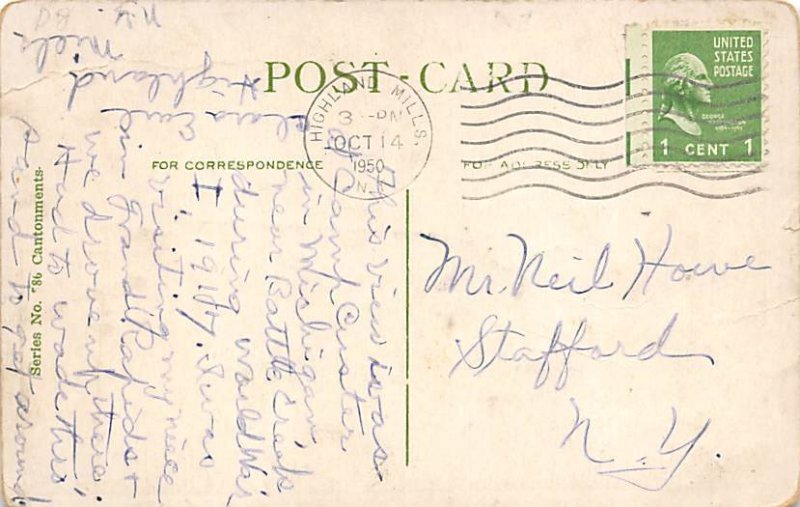 POST-CARD
FOR CORRESPONDENCE
FOR ADDRESS ONLY
UNITED
STATES
POSTAGE
GEORGE
1 CENT 1
HIGHLAND MILLS,
3 - PM
OCT 14
1950
N.
Mr. Neil Howe
Stafford
N.Y.
This view was
of Camp Custer
in Michigan
near Battle Creek
during World War
I, 1917. I was
visiting my niece
in Grand Rapids +
we drove up there.
Had to wade thru
sand to get around
Clara Earl
Highland
Mills
N.Y.
Series No. 786 Cantonments.